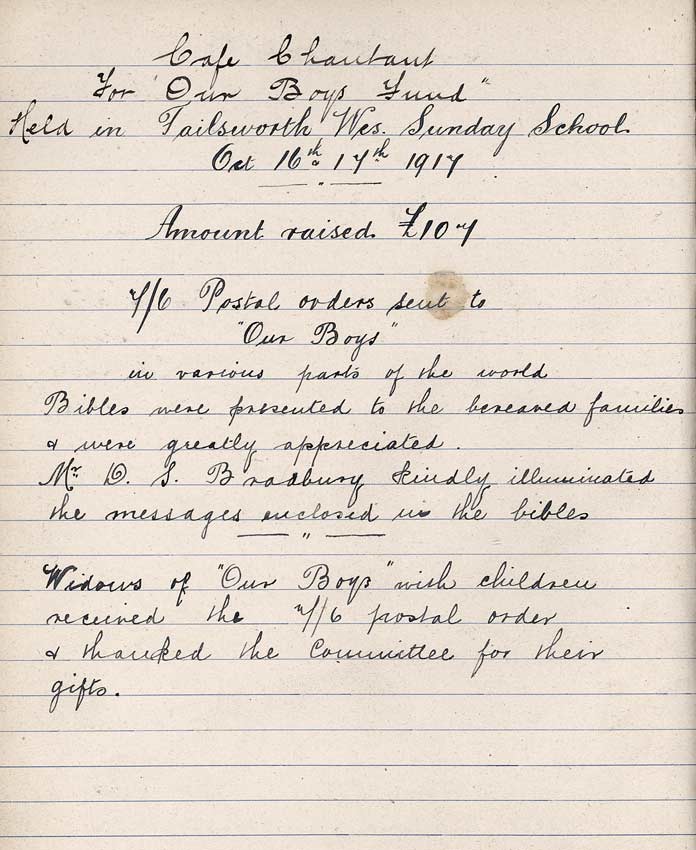 Cafe Chantant
For "Our Boys Fund"
Held in Failsworth Wes. Sunday School.
Oct 16th & 17th 1917
Amount raised £107
7/6 Postal orders sent to
"Our Boys"
in various parts of the world
Bibles were presented to the bereaved families
& were greatly appreciated.
Mr. D. S. Bradbury kindly illuminated
the messages enclosed in the bibles
Widows of "Our Boys" with children
received the 7/6 postal order
& thanked the Committee for their
gifts.